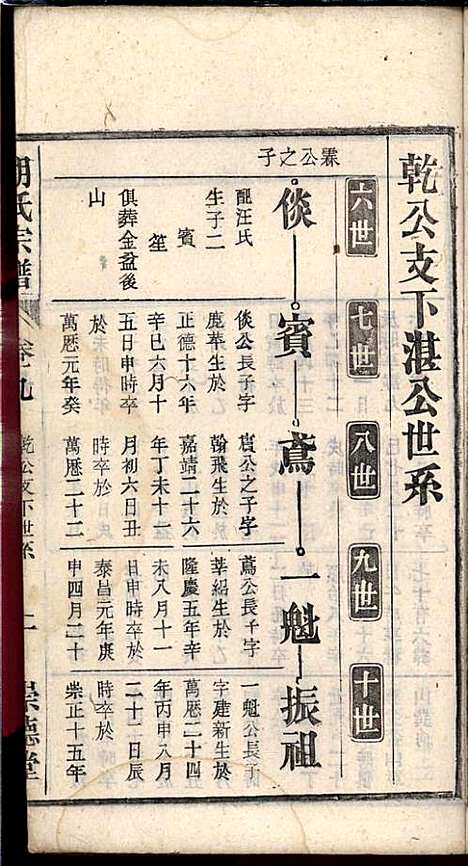 乾公支下湛公世系
六世
七世
八世
九世
十世
霖公之子
倓
賓
鳶
一魁
振祖
配汪氏
生子二
賓
笙
俱葬金盆後
山
倓公長子字
鹿苹生於
正德十六年
辛巳六月十
五日申時卒
於
萬曆元年癸
賓公之子字
翰飛生於
嘉靖二十六
年丁未十一
月初六日丑
時卒於
萬曆二十二
鳶公長子字
莘紹生於
隆慶五年辛
未八月十一
日申時卒於
泰昌元年庚
申四月二十
一魁公長子
字建新生於
萬曆二十四
年丙申八月
二十二日辰
時卒於
崇正十五年
胡氏宗譜
卷九
乾公支下世系
二
崇德堂